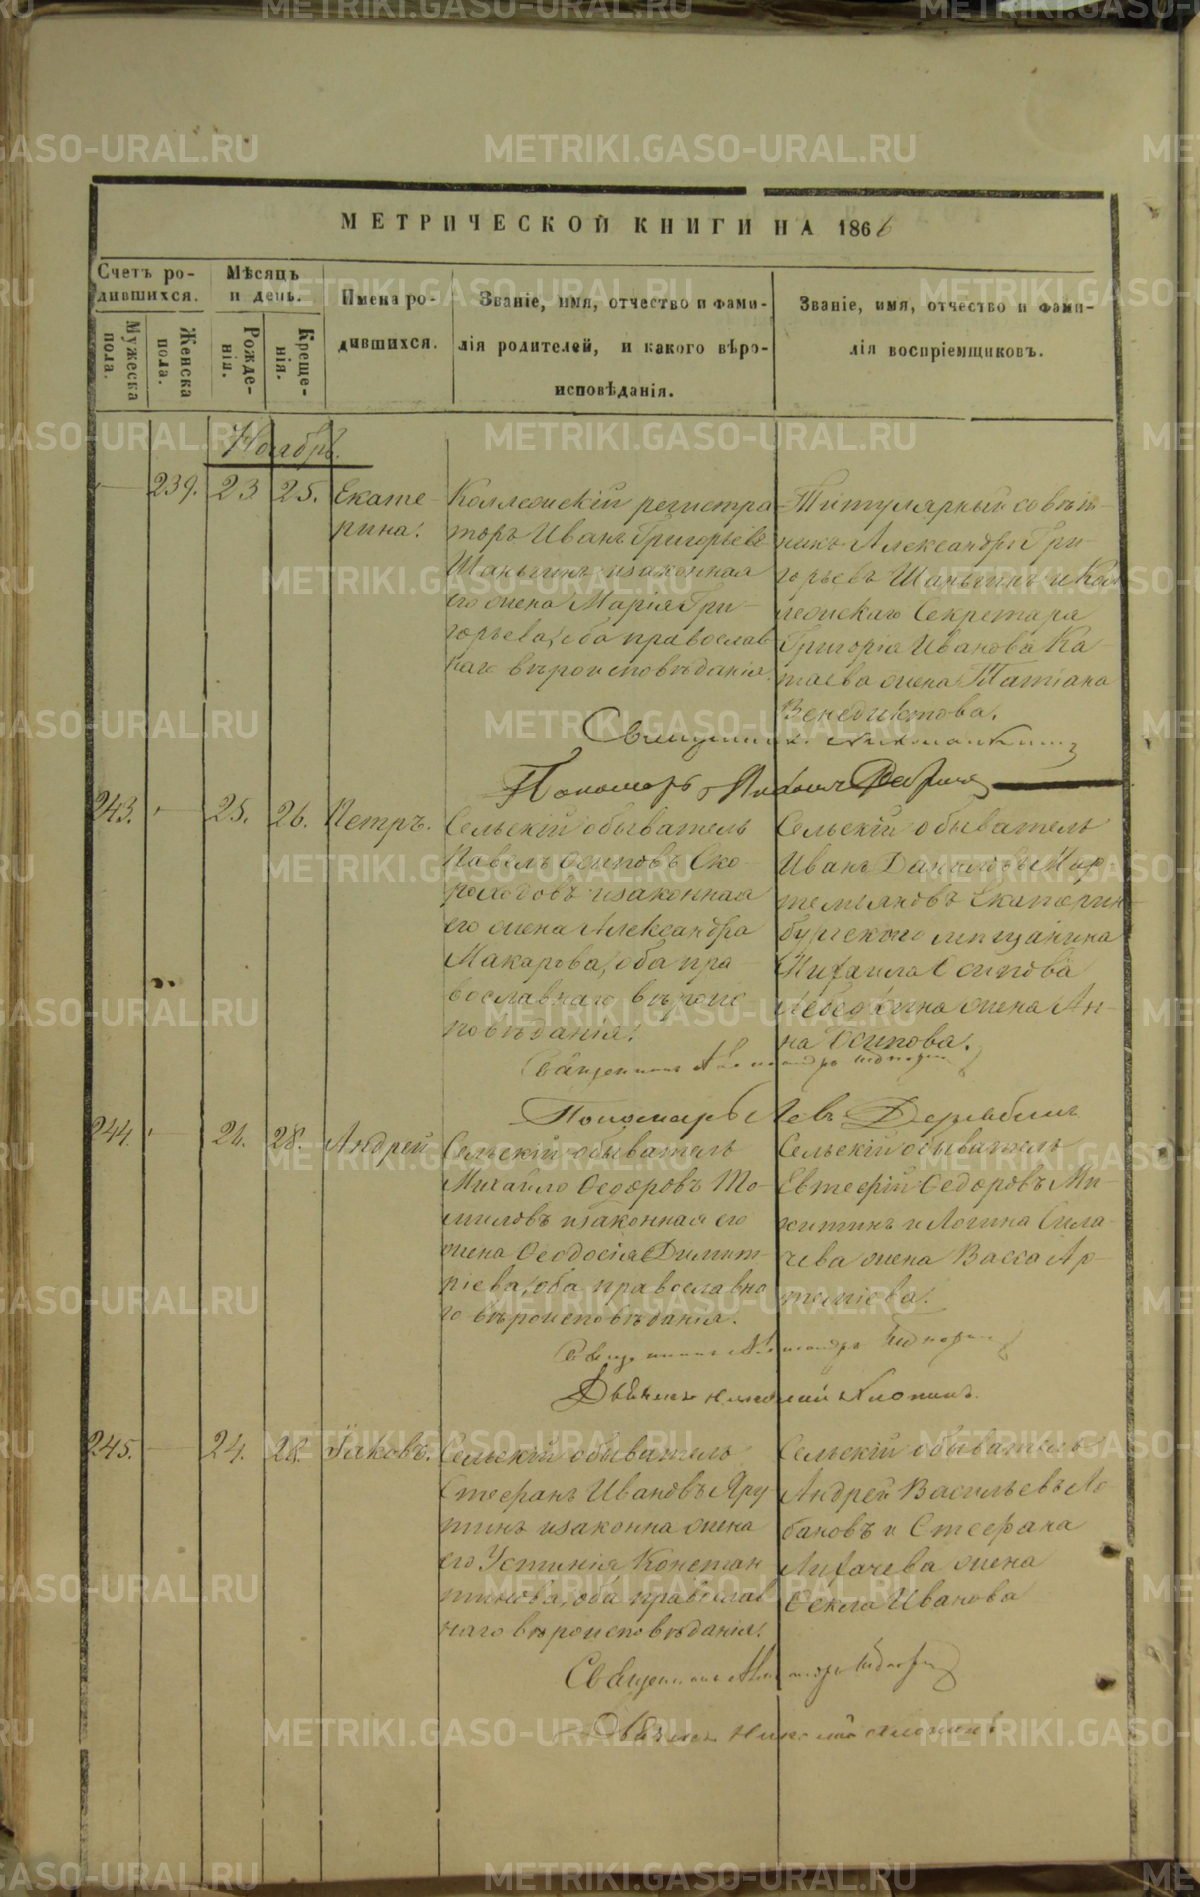 МЕТРИЧЕСКОЙ КНИГИ НА 1866
Счетъ ро-
дившихся.
Мужеска
пола.
Женска
пола.
Мѣсяцъ
и день.
Рожде-
нія.
Креще-
нія.
Имена ро-
дившихся.
Званіе, имя, отчество и фами-
лія родителей, и какого вѣро-
исповѣданія.
Званіе, имя, отчество и фами-
лія воспріемщиковъ.
Ноябрь.
239. 23 25. Екате-
рина.
Коллежскій регистра-
торъ Иванъ Григорьевъ
Шаньгинъ и законная
его жена Марія Гри-
горьева, оба православ
наго вѣроисповѣданія.
Титулярный совѣт-
никъ Александръ Гри-
горьевъ Шаньгинъ и Кол
лежскаго Секретаря
Григорія Иванова Ка-
таева жена Татіана
Венедиктова.
Священникъ
Пономарь
243. 25. 26. Петръ.
Сельскій обыватель
Павелъ Осиповъ Ско-
роходовъ и законная
его жена Александра
Макарова, оба пра-
вославнаго вѣроис-
повѣданія.
Сельскій обыватель
Иванъ Даниловъ
Екатерин-
бургскаго мѣщанина
Михаила Осипова
жена Ан-
на Осипова.
Священникъ Александръ
Пономарь Левъ Дерябинъ
244. 26. 28. Андрей
Сельскій обыватель
Михаило Ѳедоровъ То-
миловъ и законная его
жена Ѳеодосія Димит-
ріева, оба православна
го вѣроисповѣданія.
Сельскій обыватель
Евтефій Ѳедоровъ Ми-
китинъ и Логина Сила-
чева жена Васса Ар-
темьева.
Священникъ Александръ
Дьячекъ Николай Хлопинъ.
245. 24. 28. Іаковъ.
Сельскій обыватель
Стефанъ Ивановъ Яру
шинъ и законна жена
его Устинія Констан
тинова, оба православ
наго вѣроисповѣданія.
Сельскій обыватель
Андрей Васильевъ Ло
бановъ и Стефана
Лихачева жена
Ѳекла Иванова
Священникъ
Дьячекъ Николай Хлопинъ
METRIKI.GASO-URAL.RU